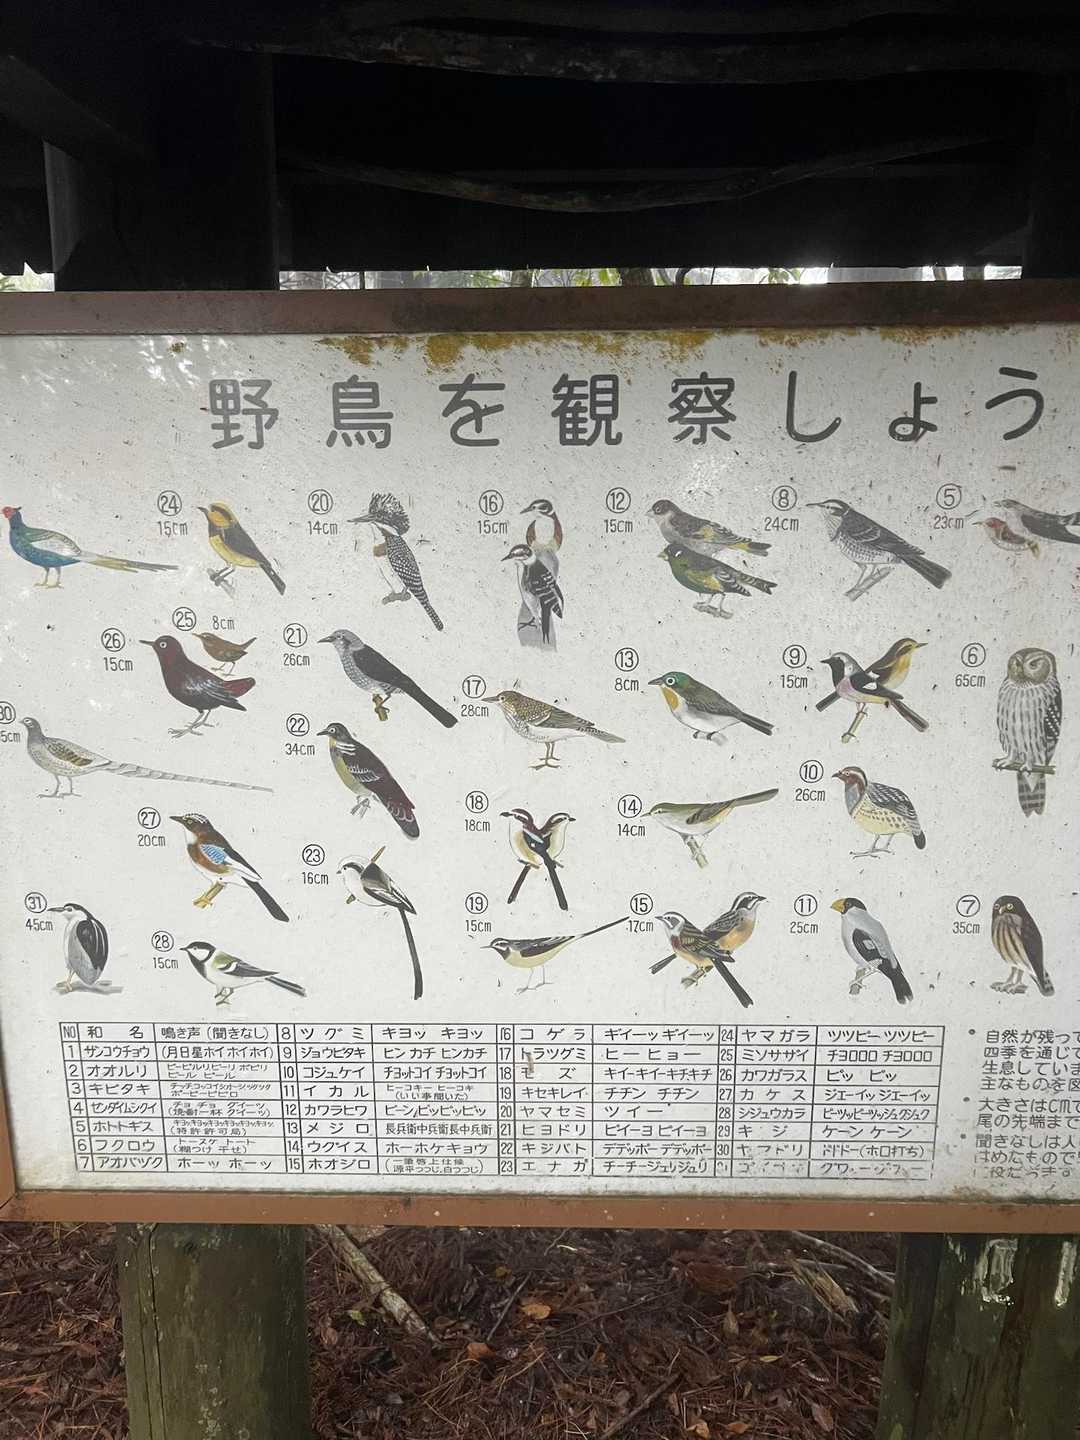 野鳥を観察しよう
㉔ 15cm
⑳ 14cm
⑯ 15cm
⑫ 15cm
⑧ 24cm
⑤ 23cm
㉖ 15cm
㉕ 8cm
㉑ 26cm
⑰ 28cm
⑬ 8cm
⑨ 15cm
⑥ 65cm
㉒ 34cm
⑱ 18cm
⑭ 14cm
⑩ 26cm
㉗ 20cm
㉓ 16cm
㉛ 45cm
㉘ 15cm
⑲ 15cm
⑮ 17cm
⑪ 25cm
⑦ 35cm
NO 和名 鳴き声(聞きなし)
1 サンコウチョウ (月日星ホイホイホイ)
2 オオルリ ピーピルリピーリ ポピリ ピール ピール
3 キビタキ
4 センダイムシクイ チョ チョ グイーッ (焼酎一杯 グイーッ)
5 ホトトギス キョッキョッキョッキョキョキョ (特許許可局)
6 フクロウ (糊つけ 干せ)
7 アオバヅク ホーッ ホーッ
8 ツグミ キヨッ キヨッ
9 ジョウビタキ ヒンカチ ヒンカチ
10 コジュケイ チョットコイ チョットコイ
11 イカル ヒーコキー ヒーコキ (いい事聞いた)
12 カワラヒワ ビーン,ビッビッビッ
13 メジロ 長兵衛中兵衛長中兵衛
14 ウグイス ホーホケキョウ
15 ホオジロ (一筆啓上仕候 源平つつじ,白つつじ)
16 コゲラ ギイーッギイーッ
17 トラツグミ ヒー ヒョー
18 モズ キイ-キイ-キチキチ
19 キセキレイ チチン チチン
20 ヤマセミ ツイー
21 ヒヨドリ ピイーヨ ピイーヨ
22 キジバト デデッポー デデッポー
23 エナガ チーチージュリジュリ
24 ヤマガラ ツツピーツツピー
25 ミソサザイ チヨロロロ チヨロロロ
26 カワガラス ピッ ピッ
27 カケス ジエーイッジエーイッ
28 シジュウカラ
29 キジ ケーン ケーン
30 ヤマドリ ドドドー(ホロ打ち)
•自然が残って
四季を通じて
生息していま
主なものを図
•大きさはcmで
尾の先端まで
•聞きなしは人
はめたもので